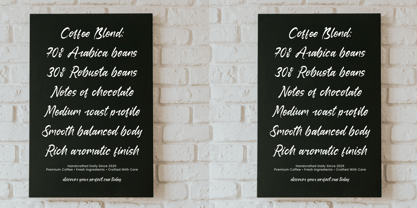 Coffee Blend:
70% Arabica beans
30% Robusta beans
Notes of chocolate
Medium roast profile
Smooth balanced body
Rich aromatic finish
Handcrafted Daily Since
Premium Coffee • Fresh Ingredients • Crafted With Care
discover your perfect cup today
Coffee Blend:
70% Arabica beans
30% Robusta beans
Notes of chocolate
Medium roast profile
Smooth balanced body
Rich aromatic finish
Handcrafted Daily Since
Premium Coffee • Fresh Ingredients • Crafted With Care
discover your perfect cup today